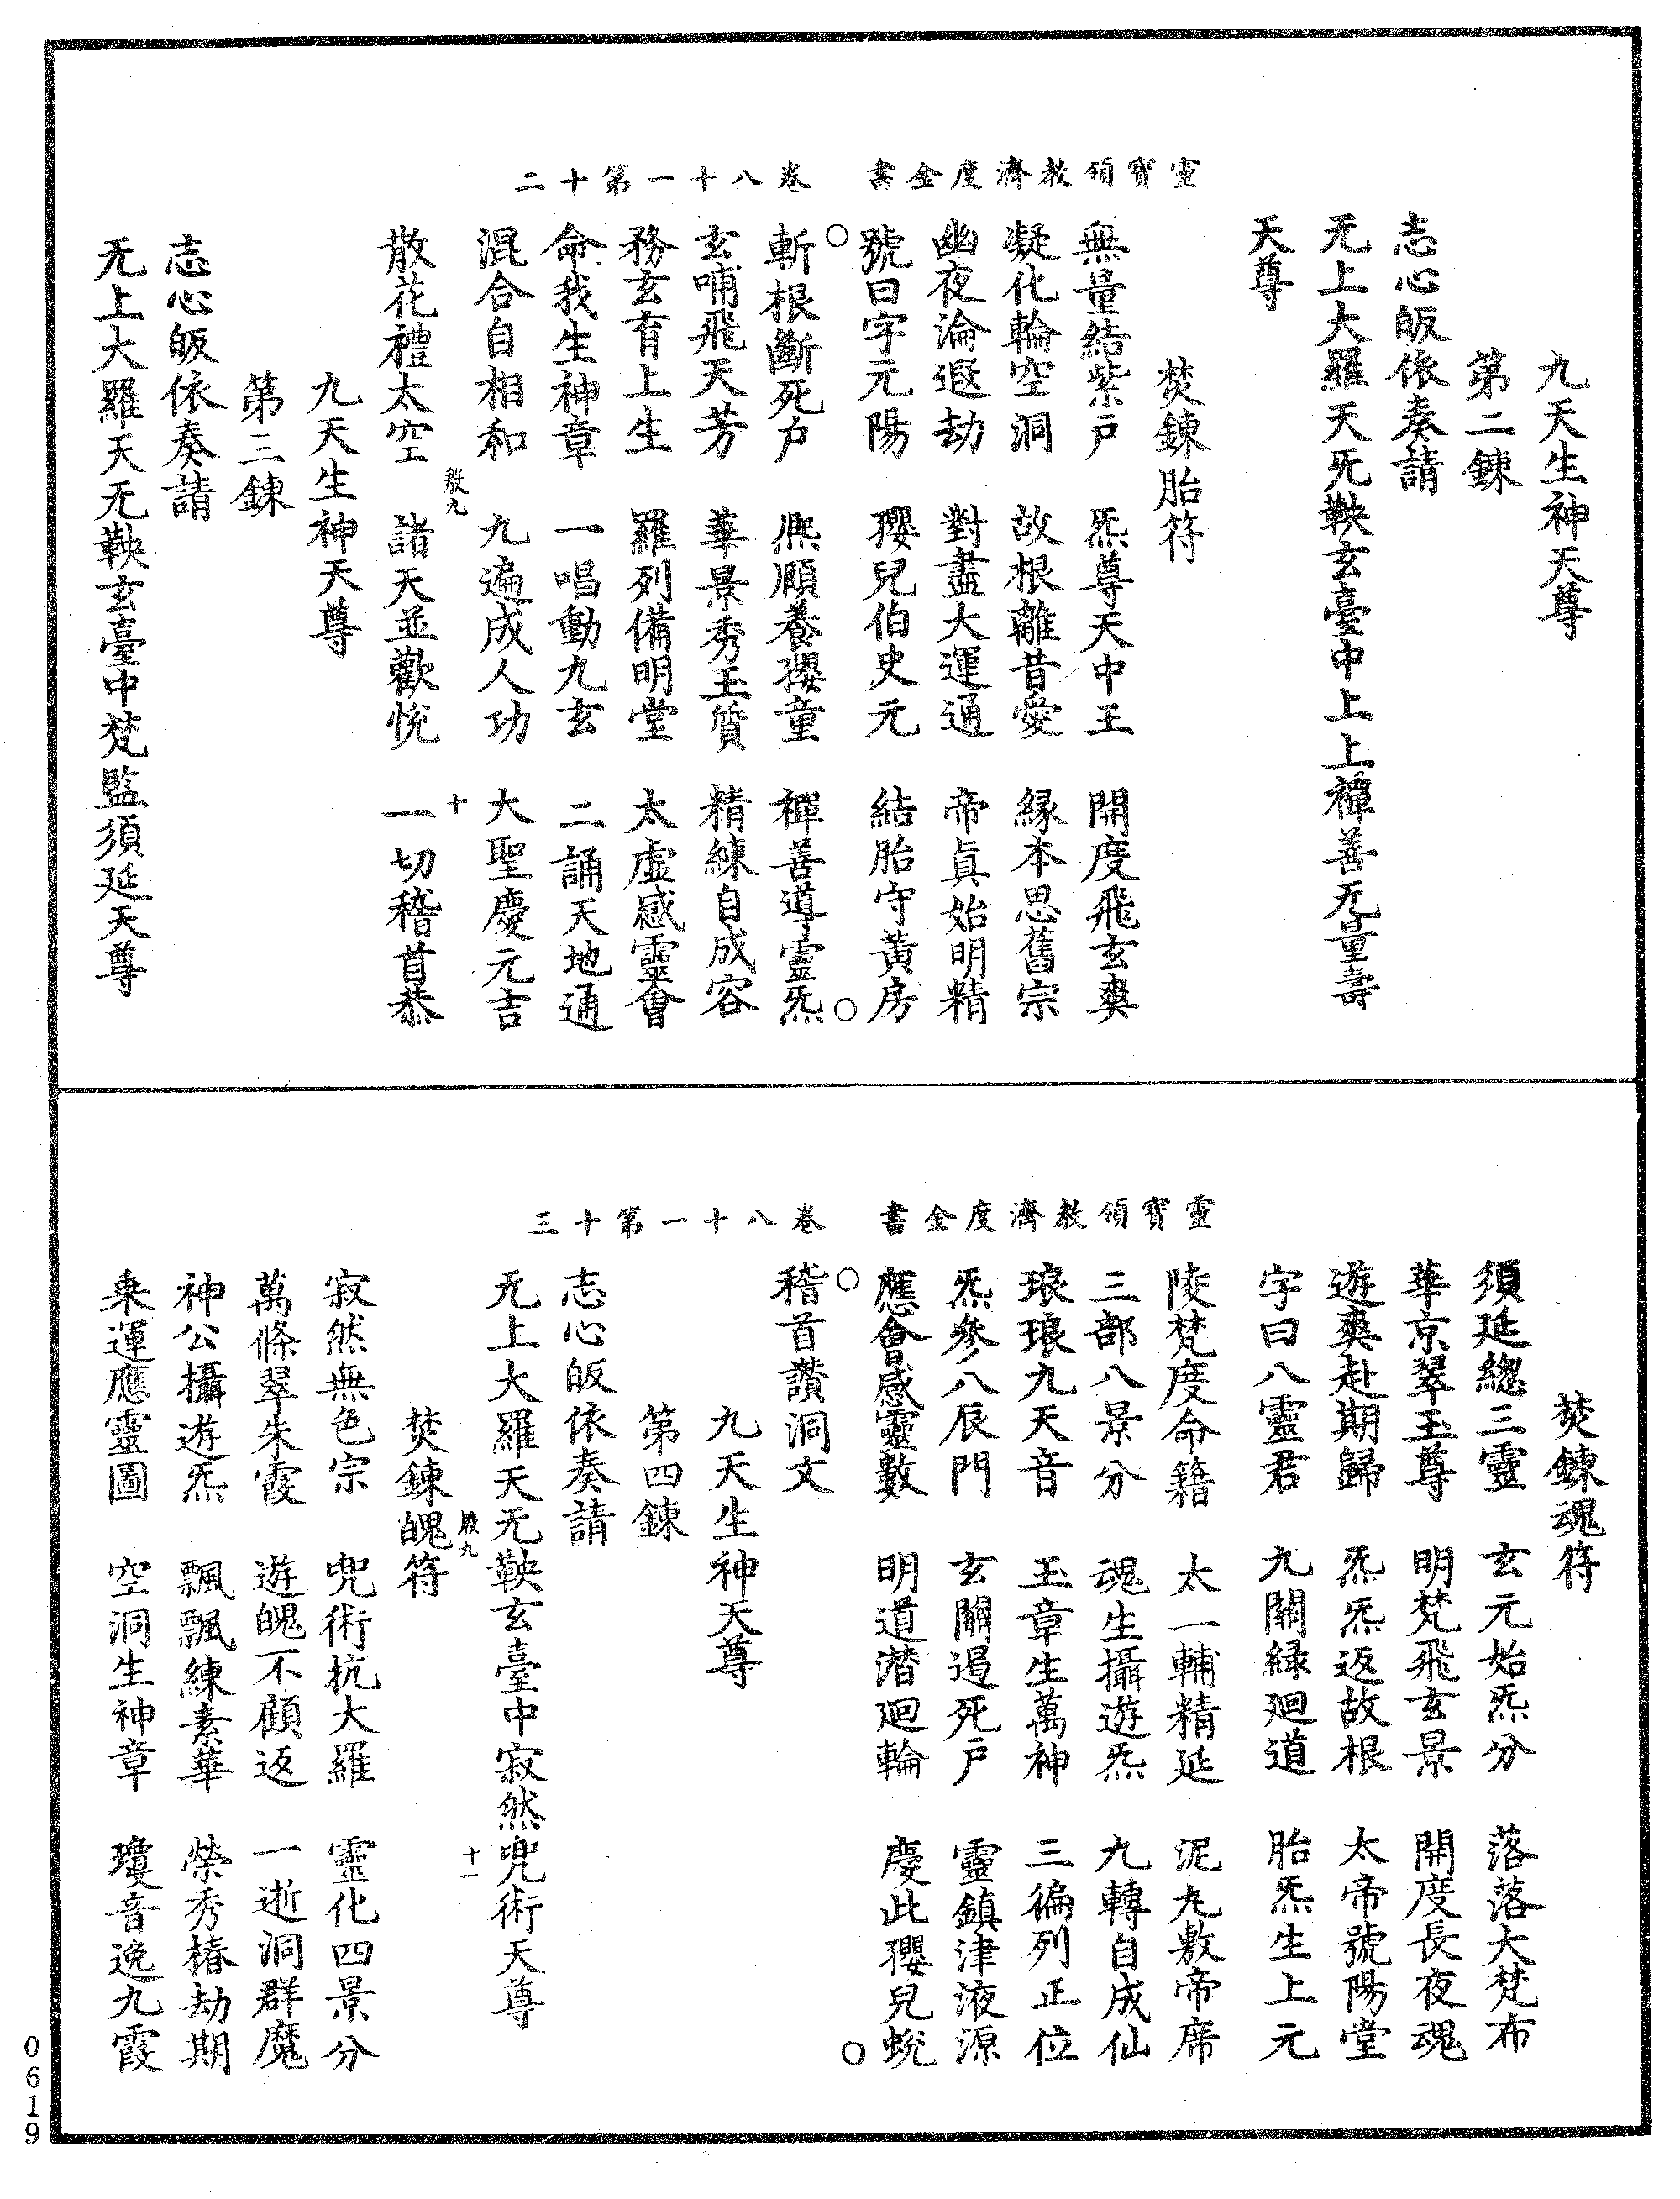 靈寶領教濟度金書　卷八十一第十二
九天生神天尊
第二鍊
志心皈依奏請
无上大羅天无鞅玄臺中上上禪善无量壽
天尊
焚鍊胎符
無量結紫戸　炁尊天中王　開度飛玄爽
凝化輪空洞　故根離昔愛　緣本思舊宗
幽夜淪遐劫　對盡大運通　帝眞始明精
號曰字元陽　瓔兒伯史元　結胎守黃房
斬根斷死户　熈頤養瓔童　禪善導靈炁
玄哺飛天芳　華景秀玉質　精練自成容
務玄育上生　羅列備明堂　太虛感靈會
命我生神章　一唱動九玄　二誦天地通
混合自相和　九遍成人功　大聖慶元吉
散花禮太空　諸天並歡悅　一切稽首恭
九　十
九天生神天尊
第三鍊
志心皈依奏請
无上大羅天无鞅玄臺中梵監須延天尊
靈寶領教濟度金書　卷八十一第十三
焚鍊魂符
須延總三靈　玄元始炁分　落落大梵布
華京翠玉尊　明梵飛玄景　開度長夜魂
遊爽赴期歸　炁炁返故根　太帝號陽堂
字曰八靈君　九關緑廻道　胎炁生上元
陵梵度命籍　太一輔精延　泥丸敷帝席
三部八景分　魂生攝遊炁　九轉自成仙
琅琅九天音　玉章生萬神　三徧列正位
炁參八辰門　玄關遏死戸　靈鎮津液源
應會感靈數　明道潛廻輪　慶此瓔兒蛻
稽首讚洞文
九天生神天尊
第四鍊
志心皈依奏請
无上大羅天无鞅玄臺中寂然兜術天尊
九　十一
焚鍊魄符
寂然無色宗　兜術抗大羅　靈化四景分
萬條翠朱霞　遊魄不顧返　一逝洞群魔
神公攝遊炁　飄飄練素華　榮秀椿劫期
乘運應靈圖　空洞生神章　瓊音逸九霞
0619